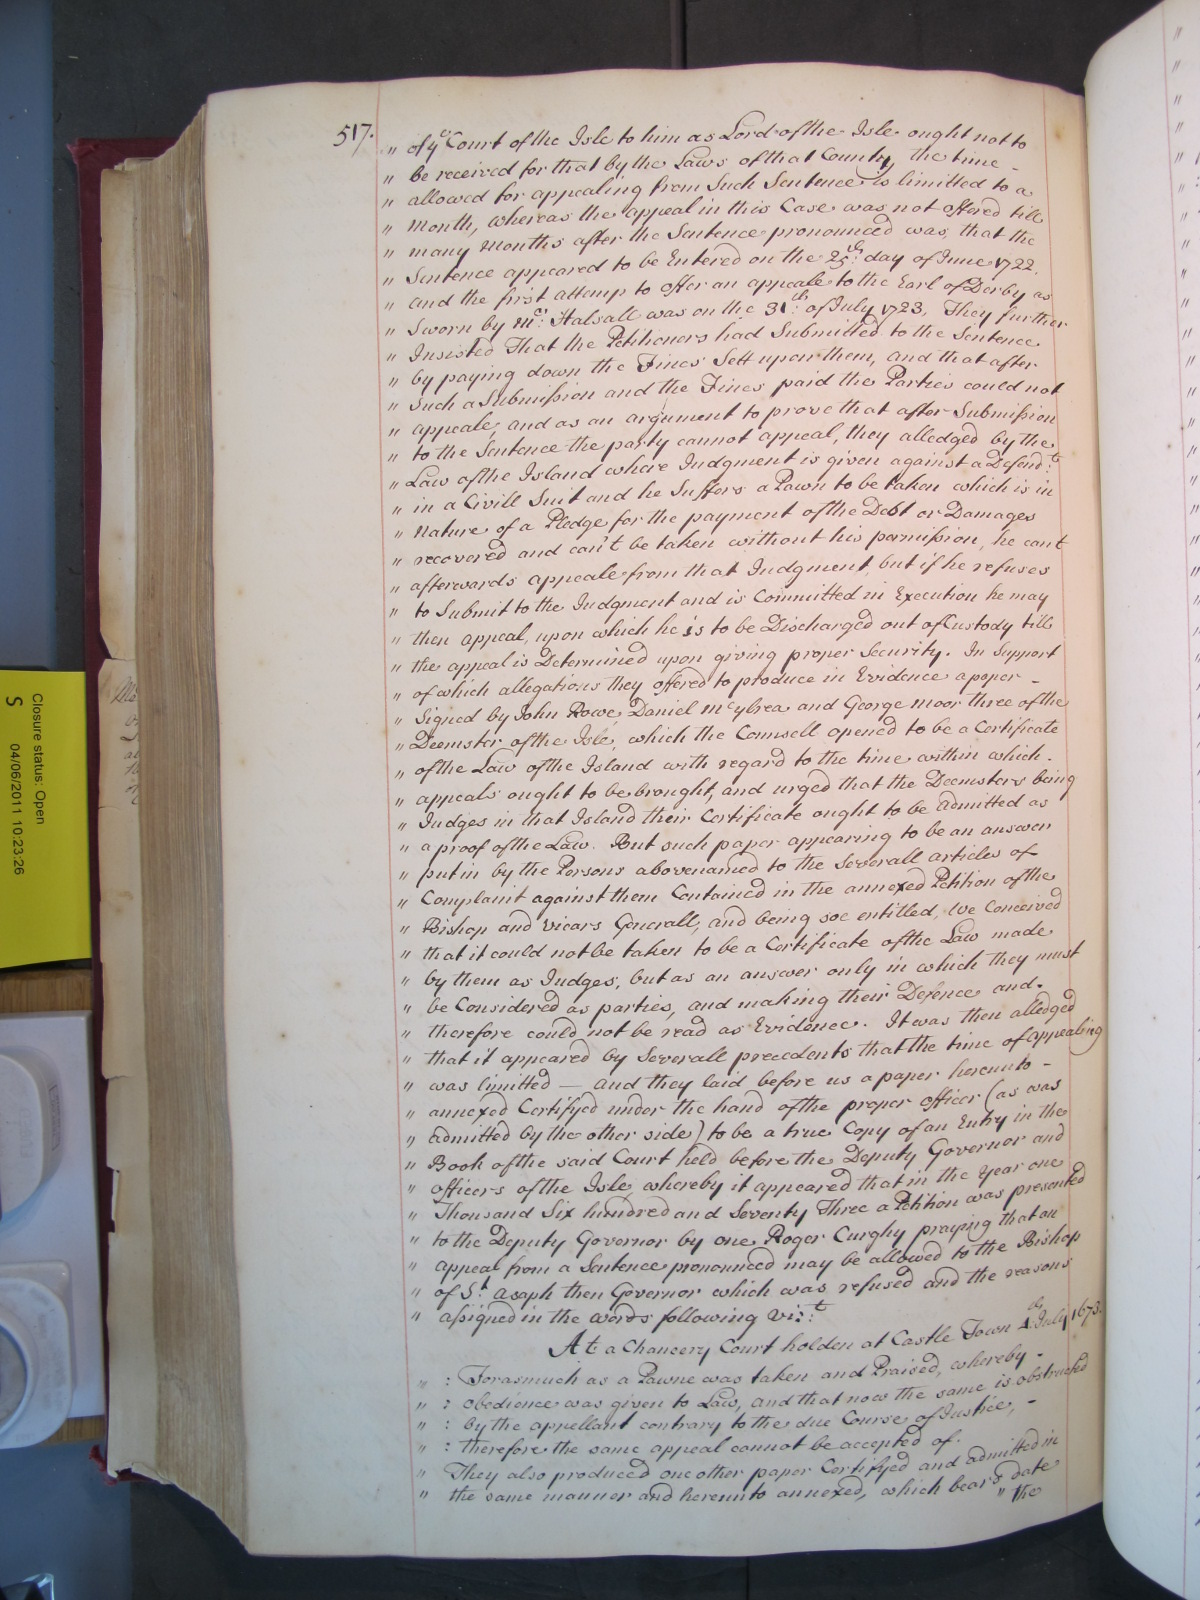 517.
" of ye Court of the Isle to him as Lord of the Isle ought not to
" be received for that by the Laws of that County the time -
" allowed for appealing from Such Sentence is limitted to a
" Month, whereas the appeal in this Case was not offered till
" many Months after the Sentence pronounced was, that the
" Sentence appeared to be Entered on the 25th: day of June 1722.
" and the first attemp to offer an appeale to the Earl of Derby as
" Sworn by Mr: Halsall was on the 31th: of July 1723, They further
" Insisted That the Petitioners had Submitted to the Sentence
" by paying down the Fines Sett upon them, and that after
" Such a Submission and the Fines paid the Parties could not
" appeale, and as an argument to prove that after Submission
" to the Sentence the party cannot appeal, they alledged by the
" Law of the Island where Judgment is given against a Defend:t
" in a Civill Suit and he Suffers a Pawn to be taken which is in
" Nature of a Pledge for the payment of the Debt or Damages
" recovered and can't be taken without his permission, he can't
" afterwards appeale from that Judgment but if he refuses
" to Submit to the Judgment and is Committed in Execution he may
" then appeal, upon which he is to be Discharged out of Custody till
" the appeal is Determined upon giving proper Security. In Support
" of which allegations they offered to produce in Evidence a paper -
" Signed by John Rowe, Daniel Mcylrea and George Moor three of the
" Deemster of the Isle, which the Counsell opened to be a Certificate
" of the Law of the Island with regard to the time within which.
" appeals ought to be brought, and urged that the Deemsters being
" Judges in that Island their Certificate ought to be admitted as
" a proof of the Law. But such paper appearing to be an answer
" put in by the Persons abovenamed to the Severall articles of
" Complaint against them Contained in the annexed Petition of the
" Bishop and Vicars Generall, and being soe entitled, We Conceived
" that it could not be taken to be a Certificate of the Law made
" by them as Judges, but as an answer only in which they must
" be Considered as parties, and making their Defence and.
" therefore could not be read as Evidence. It was then alledged
" that it appeared by Severall precedents that the time of appealing
" was limitted — and they laid before us a paper hereunto -
" annexed Certifyed under the hand of the proper officer (as was
" admitted by the other side) to be a true Copy of an Entry in the
" Book of the said Court held before the Deputy Governor and
" officers of the Isle, whereby it appeared that in the Year one
" Thousand Six hundred and Seventy Three a Petition was presented
" to the Deputy Governor by one Roger Curghy praying that an
" appeal from a Sentence pronounced may be allowed to the Bishop
" of St. asaph then Governor which was refused and the reasons
" assigned in the words following viz:t
At a Chancery Court holden at Castle Town 4th July 1673.
" : Forasmuch as a Pawne was taken and Praised, whereby -
" : obedience was given to Law, and that now the same is obstructed
" : by the appellant contrary to the due Course of Justice, -
" : therefore the same appeal cannot be accepted of.
" They also produced one other paper Certifyed and admitted in
" the same manner and hereunto annexed, which bears date
" the
Closure status: Open
S
04/06/2011 10:23:26